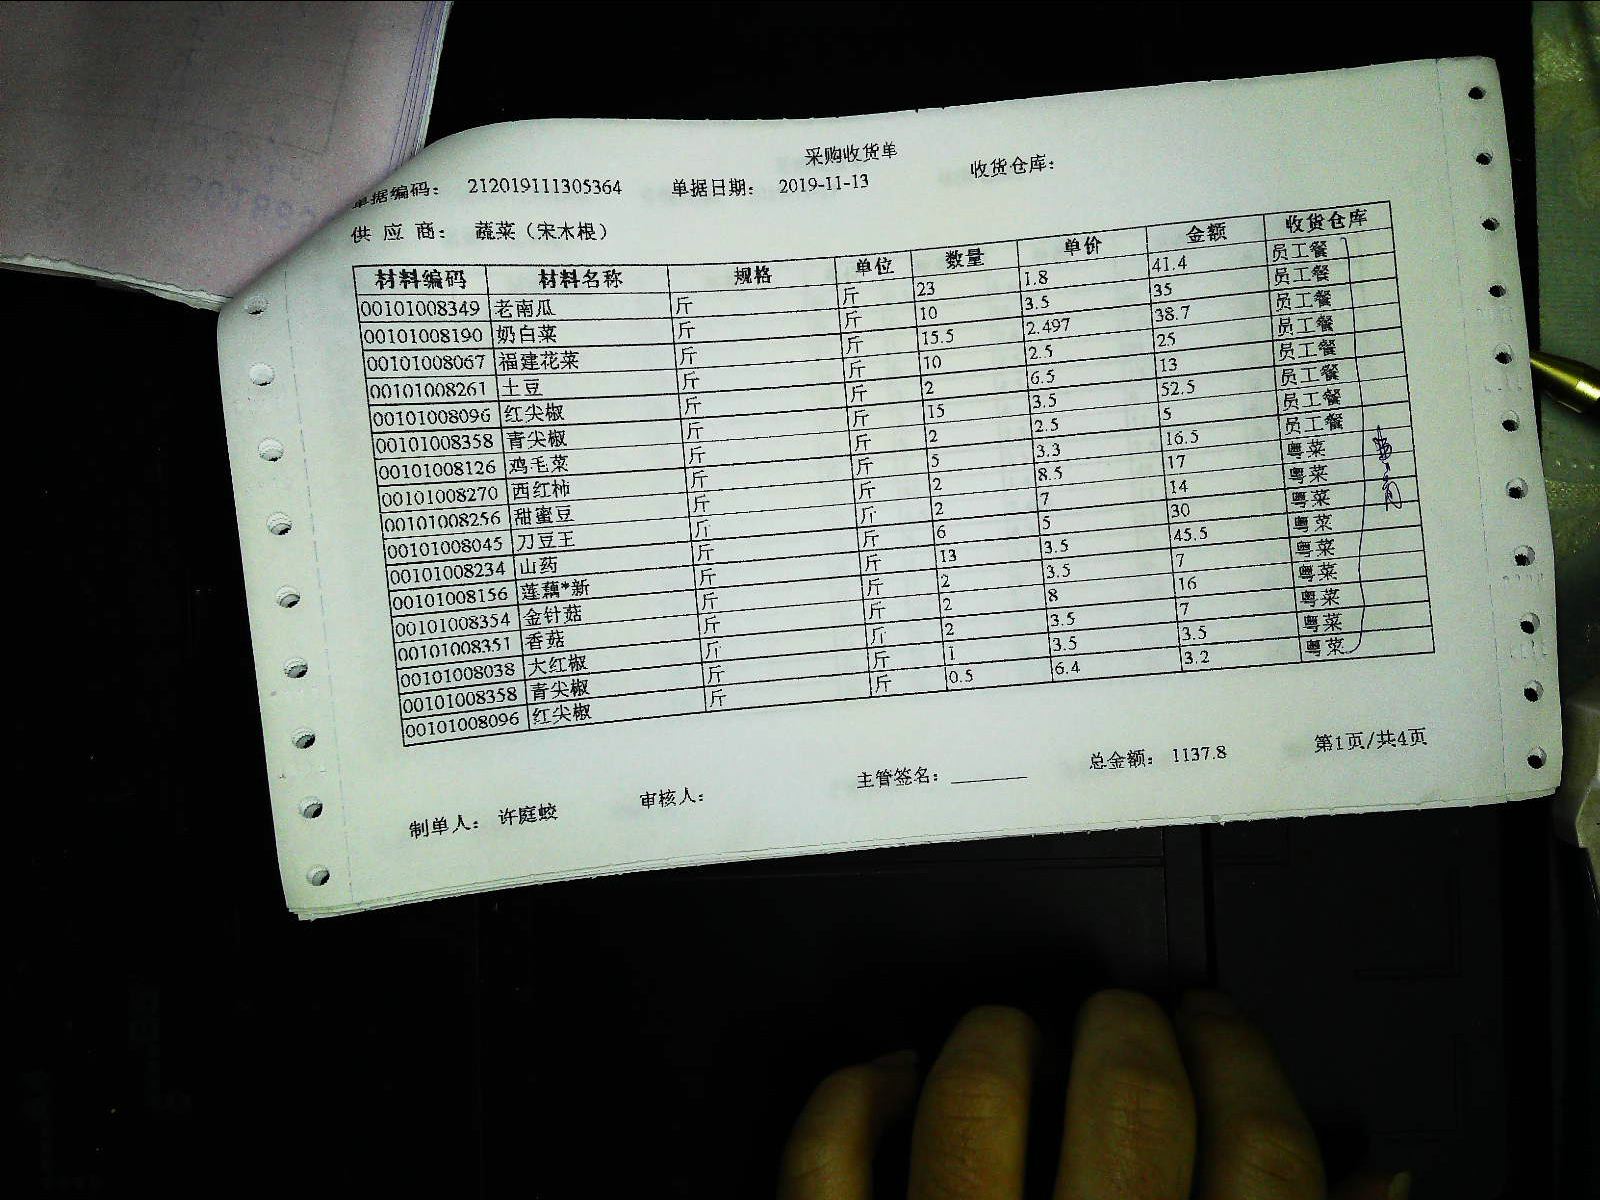 采购收货单
单据编码： 212019111305364 单据日期： 2019-11-13 收货仓库：
供 应 商： 蔬菜（宋木根）
材料编码 材料名称 规格 单位 数量 单价 金额 收货仓库
00101008349 老南瓜 斤 斤 23 1.8 41.4 员工餐
00101008190 奶白菜 斤 斤 10 3.5 35 员工餐
00101008067 福建花菜 斤 斤 15.5 2.497 38.7 员工餐
00101008261 土豆 斤 斤 10 2.5 25 员工餐
00101008096 红尖椒 斤 斤 2 6.5 13 员工餐
00101008358 青尖椒 斤 斤 15 3.5 52.5 员工餐
00101008126 鸡毛菜 斤 斤 2 2.5 5 员工餐
00101008270 西红柿 斤 斤 5 3.3 16.5 员工餐
00101008256 甜蜜豆 斤 斤 2 8.5 17 粤菜
00101008045 刀豆王 斤 斤 2 7 14 粤菜
00101008234 山药 斤 斤 6 5 30 粤菜
00101008156 莲藕*新 斤 斤 13 3.5 45.5 粤菜
00101008354 金针菇 斤 斤 2 3.5 7 粤菜
00101008351 香菇 斤 斤 2 8 16 粤菜
00101008038 大红椒 斤 斤 2 3.5 7 粤菜
00101008358 青尖椒 斤 斤 1 3.5 3.5 粤菜
00101008096 红尖椒 斤 斤 0.5 6.4 3.2 粤菜
制单人： 许庭蛟 审核人： 主管签名： 总金额： 1137.8 第1页/共4页